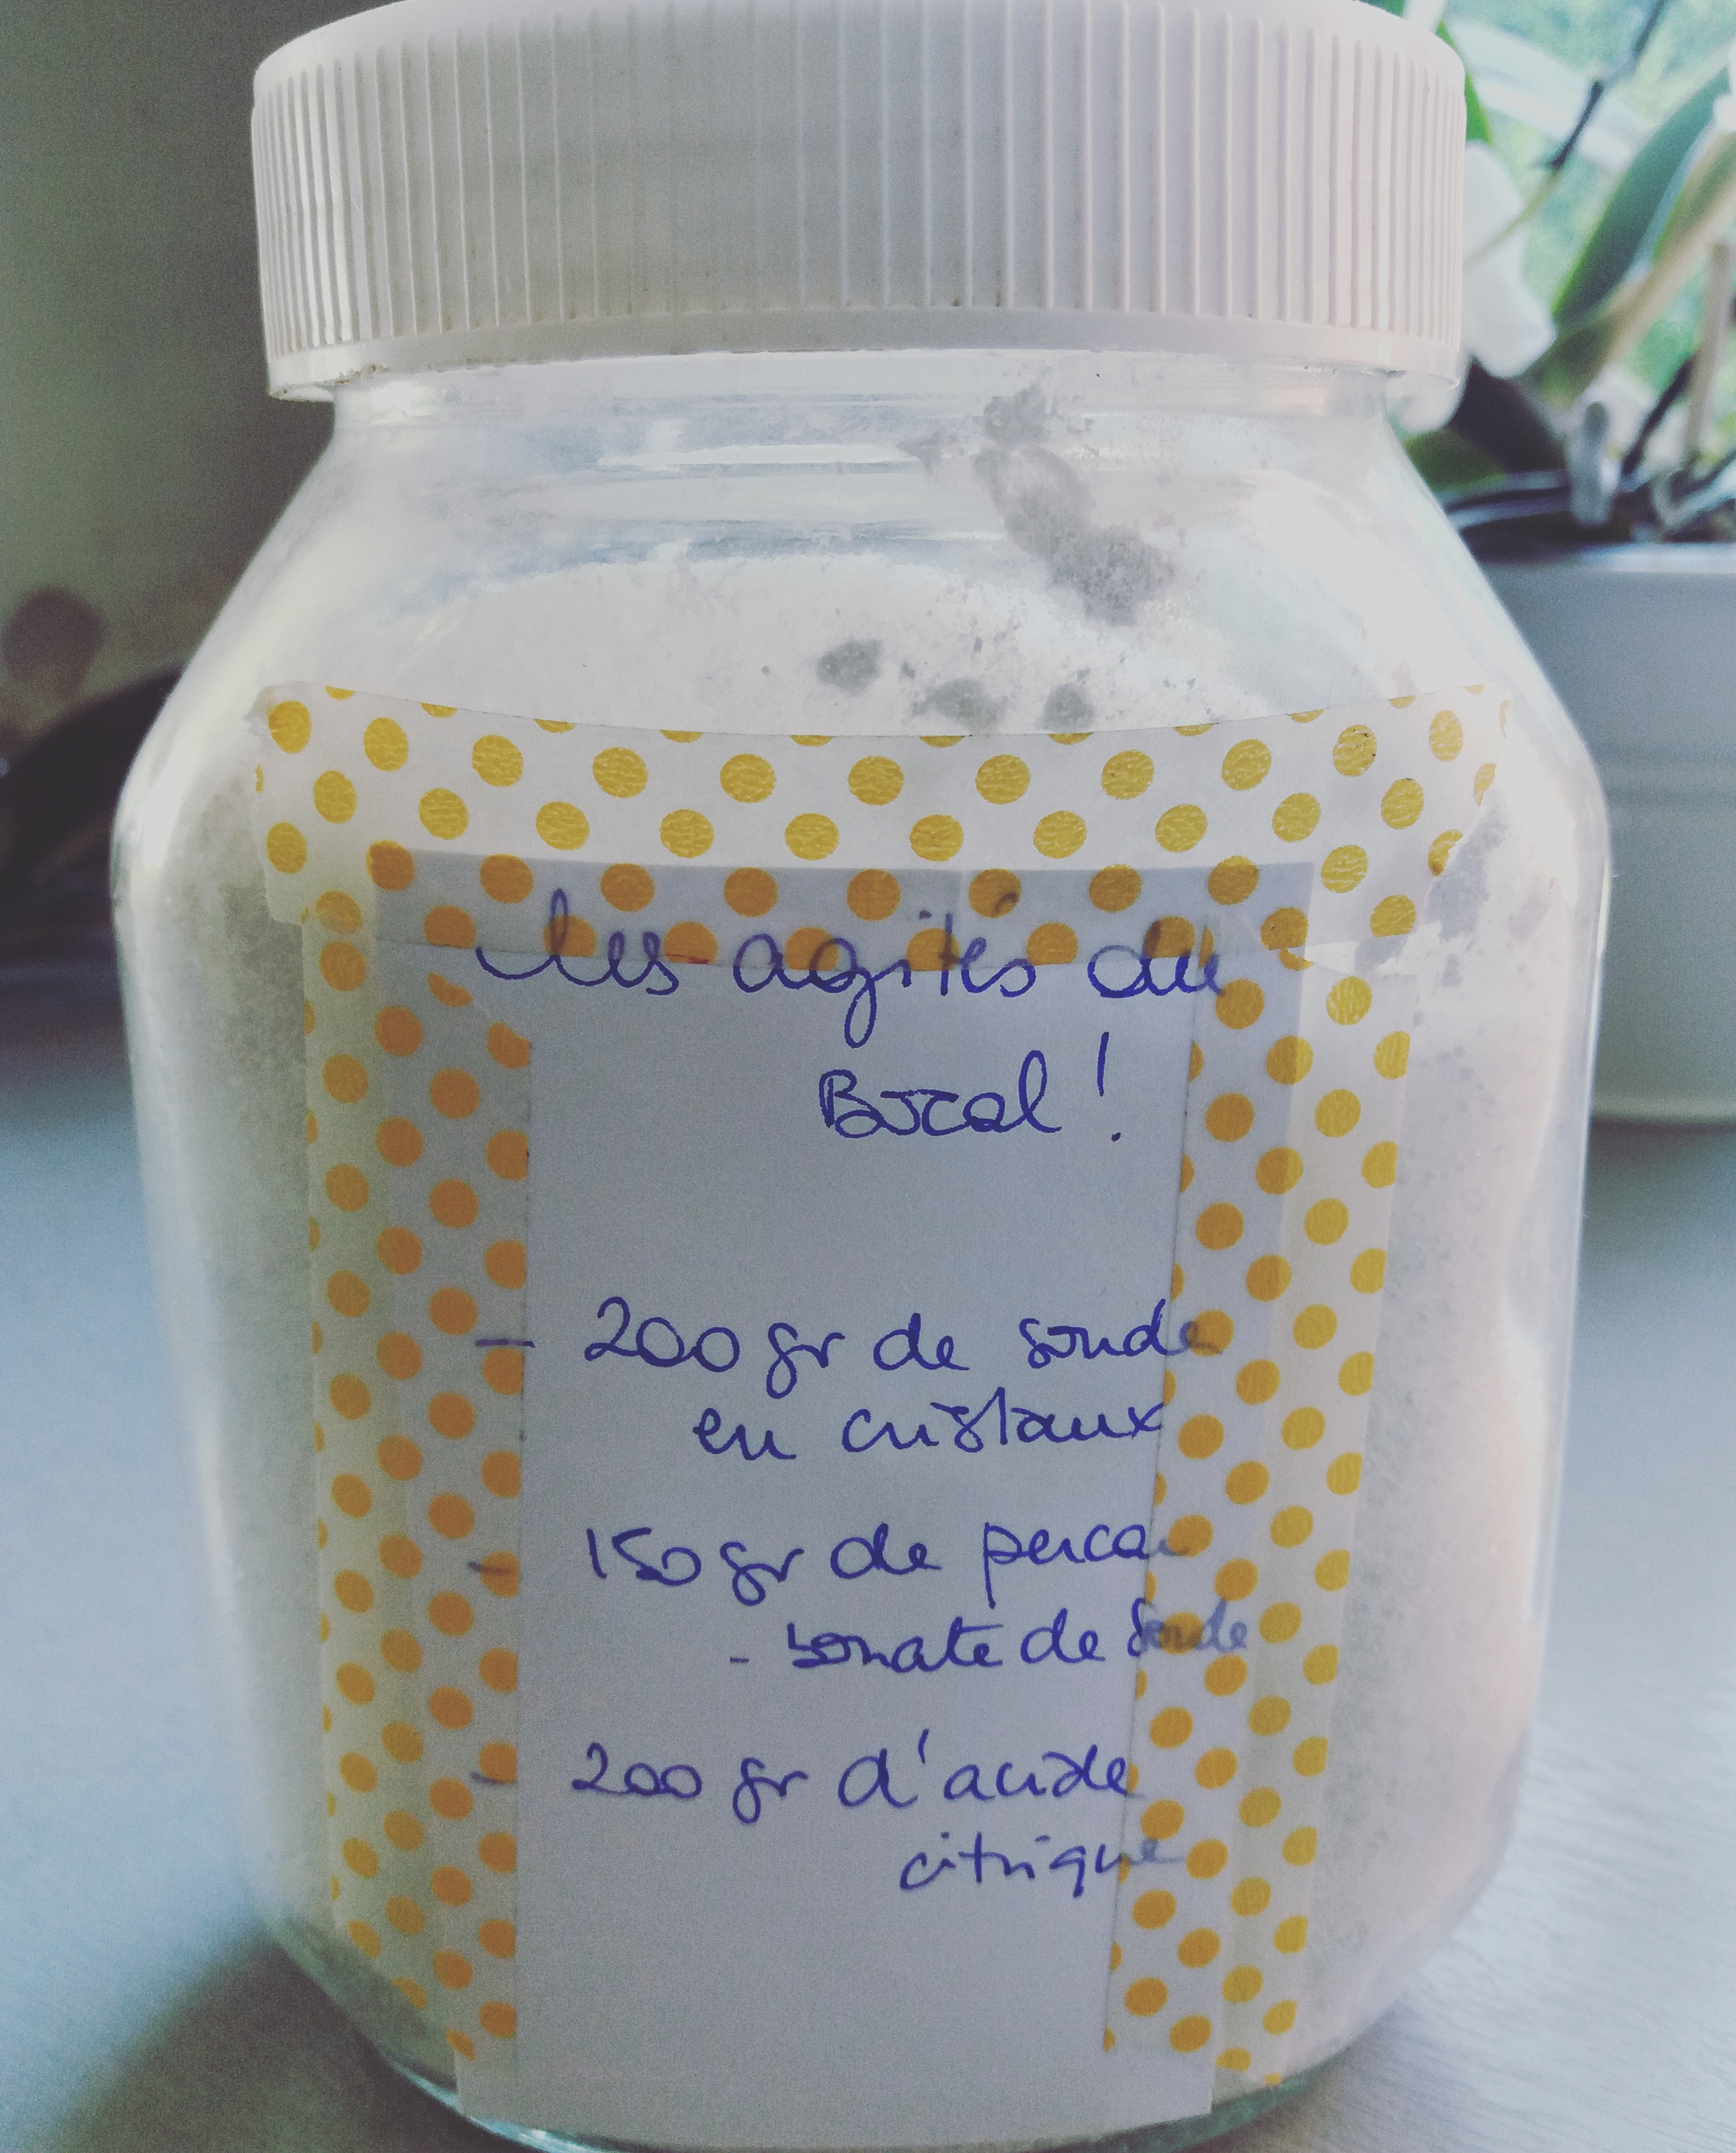 les agités du
Bocal !
- 200 gr de soude
en cristaux
- 150 gr de percar
- bonate de soude
- 200 gr d'acide
citrique